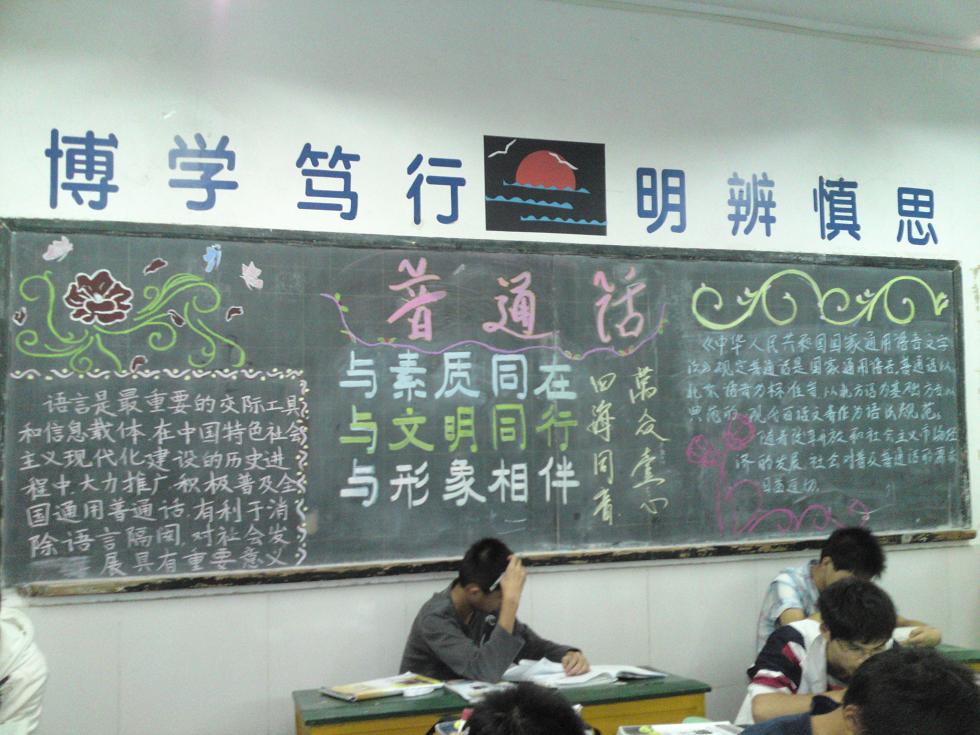 博学笃行 明辨慎思
普通话
语言是最重要的交际工具
和信息载体.在中国特色社会
主义现代化建设的历史进
程中,大力推广积极普及全
国通用普通话,有利于消
除语言隔阂,对社会发
展具有重要意义
与素质同在
与文明同行
与形象相伴
四海同音
万众一心
《中华人民共和国国家通用语言文字
法》规定普通话是国家通用语言,普通话以
北京语音为标准音,以北方话为基础方言,以
典范的现代白话文著作为语法规范。
随着改革开放和社会主义市场经
济的发展,社会对普及普通话的需求
日益迫切.